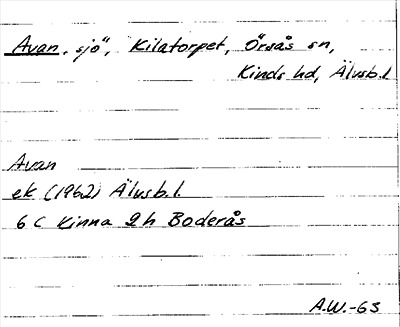 Avan, sjö, Kilatorpet, Örsås sn,
Kinds hd, Älvsb.l
Avan
ek (1962) Älvsb.l.
6 C Kinna 2 h Boderås
A.W.-63